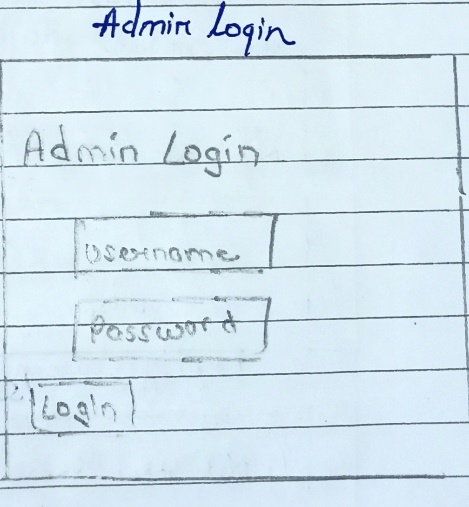 Admin Login
Admin Login
Username
Password
Login